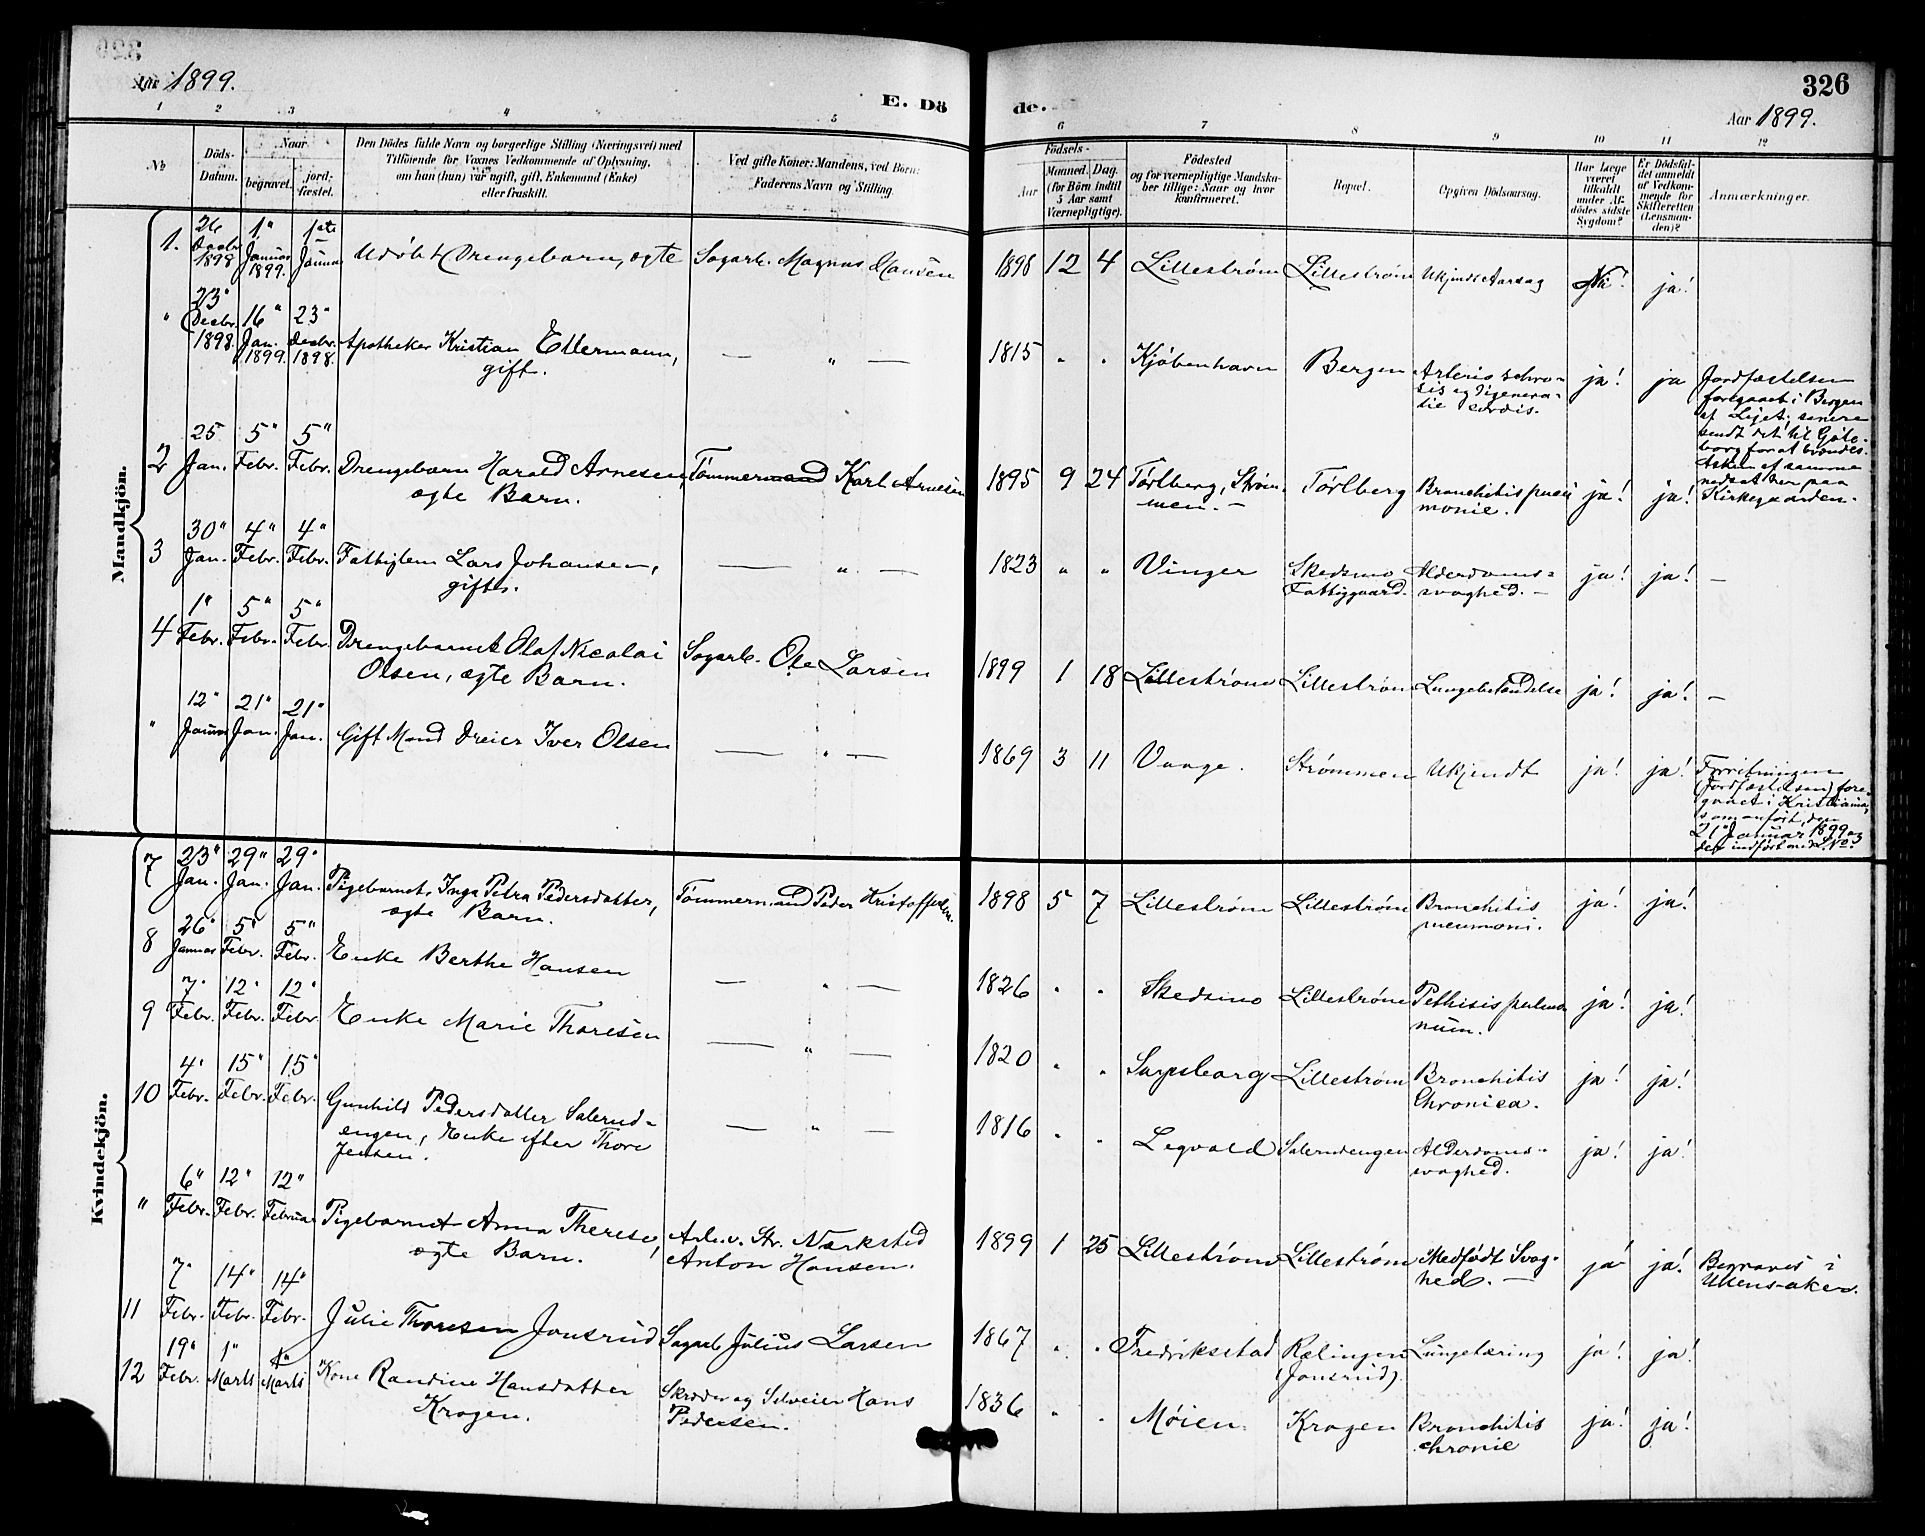 Aar 1899.
E. Dö
de.
326
Aar 1899.
1 2 3 4 5 6 7 8 9 10 11 12
No
Döds-
Datum.
Naar
begravet.
jord-
fæstet.
Den Dödes fulde Navn og borgerlige Stilling (Næringsvei) med
Tilföiende for Voxnes Vedkommende af Oplysning,
om han (hun) var ugift, gift, Enkemand (Enke)
eller fraskilt.
Ved gifte Koner: Mandens, ved Børn:
Faderens Navn og Stilling.
Födsels-
Aar
Maaned. Dag.
(for Börn indtil
5 Aar samt
Værnepligtige).
Födested
og for værnepligtige Mandska-
ber tillige: Naar og hvor
konfirmeret.
Bopæl.
Opgiven Dödsaarsag.
Har Læge
været
tilkaldt
under Af-
dödes sidste
Sygdom?
Er Dödsfal-
det anmeldt
af Vedkom-
mende for
Skifteretten
(Lensman-
den)?
Anmærkninger.
Mandkjön.
1. 26 Decbr 1898 1" Januar 1899. 1ste Januar Udøbt Drengebarn, ægte Sagarb. Magnus Hansen 1898 12 4 Lillestrøm Lillestrøm Ukjendt Aarsag Nei! ja!
" 23" Decbr. 1898. 16" Jan. 1899. 23" Decbr. 1898. Apotheker Kristian Ellermann,
gift. — " — 1815 " " Kjøbenhavn Bergen ja! ja
Jordfæstelsen
foregaaet i Bergen
af Liget; senere
sendt det til Gøte-
borg for at brændes
Asken af samme
nedsat her paa
Kirkegaarden.
2 25 Jan. 5" Febr. 5" Febr. Drengebarn Harald Arnesen, Tømmermand Karl Arnesen
ægte Barn. 1895 9 24 Tørlberg, Strøm-
men. — Tørlberg Bronchitis pneu
monie. ja! ja!
3 30" Jan. 4" Febr. 4" Febr. Fattiglem Lars Johansen,
gift. — " — 1823 " " Vinger Skedsmo
Fattiggaard. Alderdoms=
svaghed. — ja! ja! —
4 1" Febr. 5" Febr. 5" Febr. Drengebarnet Olaf Nicolai
Olsen, ægte Barn. Sagarb. Ole Larsen 1899 1 18 Lillestrøm Lillestrøm Lungebetændelse ja! ja! —
" 12" Januar 21" Jan. 21" Jan. Gift Mand Dreier Iver Olsen — " — 1869 3 11 Vaage. Strømmen Ukjendt ja! ja!
Forretningen
(Jordfæstelsen) fore-
gaaet i Kristiania,
som anført, den
21" Januar 1899 og
der indført under No 3
Kvindekjön.
7 23" Jan. 29" Jan. 29" Jan. Pigebarnet Inga Petra Pedersdatter,
ægte Barn. Tømmermand Peder Kristoffersen. 1898 5 7 Lillestrøm Lillestrøm Bronchitis
pneumoni. ja! ja!
8 26" Januar 5" Febr. 5" Febr. Enke Berthe Hansen — " — 1826 " " Skedsmo Lillestrøm Pethisis pulmo
num. ja! ja!
9 7" Febr. 12" Febr. 12" Febr. Enke Marie Thoresen — " — 1820 " " Sarpsborg Lillestrøm Bronchitis
Chronica. ja! ja!
10 4" Febr. 15" Febr. 15" Febr. Gunhild Pedersdatter Salerud=
engen, Enke efter Thore
Jensen. — " — 1816 " " Legvold Salerudengen Alderdoms=
svaghed. ja! ja!
" 6" Febr. 12" Febr. 12" Februar Pigebarnet Anna Therese,
ægte Barn. Arb. v. Str. Værksted
Anton Hansen. 1899 1 25 Lillestrøm Lillestrøm Medfødt Svag-
hed. — ja! ja! Begraves i
Ullensaker.
11 7" Febr. 14" Febr. 14" Febr. Julie Thoresen Jonsrud Sagarb Julius Larsen 1867 " " Fredriksstad Rælingen
(Jonsrud). Lungetæring ja! ja!
12 19" Febr. 1" Marts 1" Marts Kone Randine Hansdatter
Krogen. Skrædder og Selveier Hans
Pedersen. 1836 " " Møien Krogen Bronchitis
chronic ja! ja!